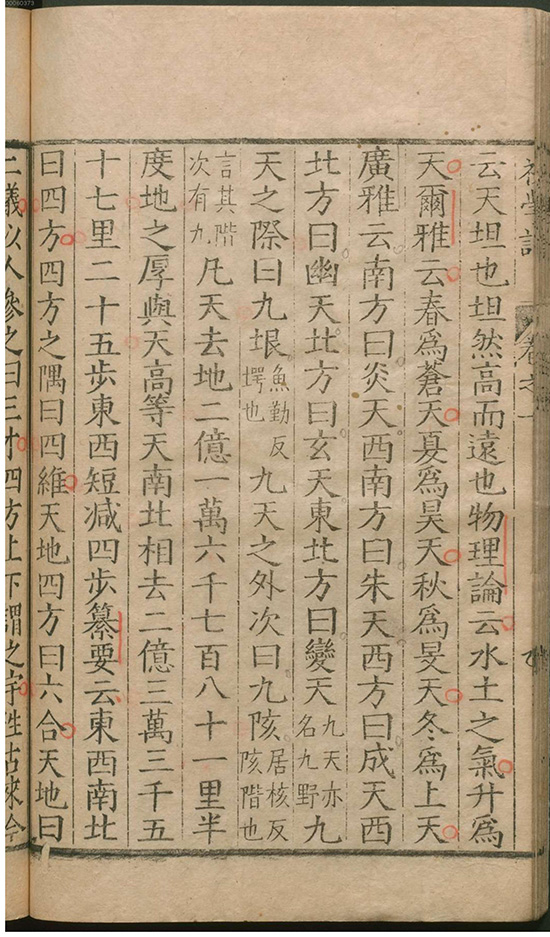 初學記
卷之一
云天坦也坦然高而遠也物理論云水土之氣升爲
天爾雅云春爲蒼天夏爲昊天秋爲旻天冬爲上天
廣雅云南方曰炎天西南方曰朱天西方曰成天西
北方曰幽天北方曰玄天東北方曰變天九天亦名九野九
天之際曰九垠魚勤反堮也九天之外次曰九陔居核反陔階也
言其階次有九凡天去地二億一萬六千七百八十一里半
度地之厚與天高等天南北相去二億三萬三千五
十七里二十五步東西短减四步纂要云東西南北
曰四方四方之隅曰四維天地四方曰六合天地曰
二儀以人參之曰三才四方上下謂之宇往古來今